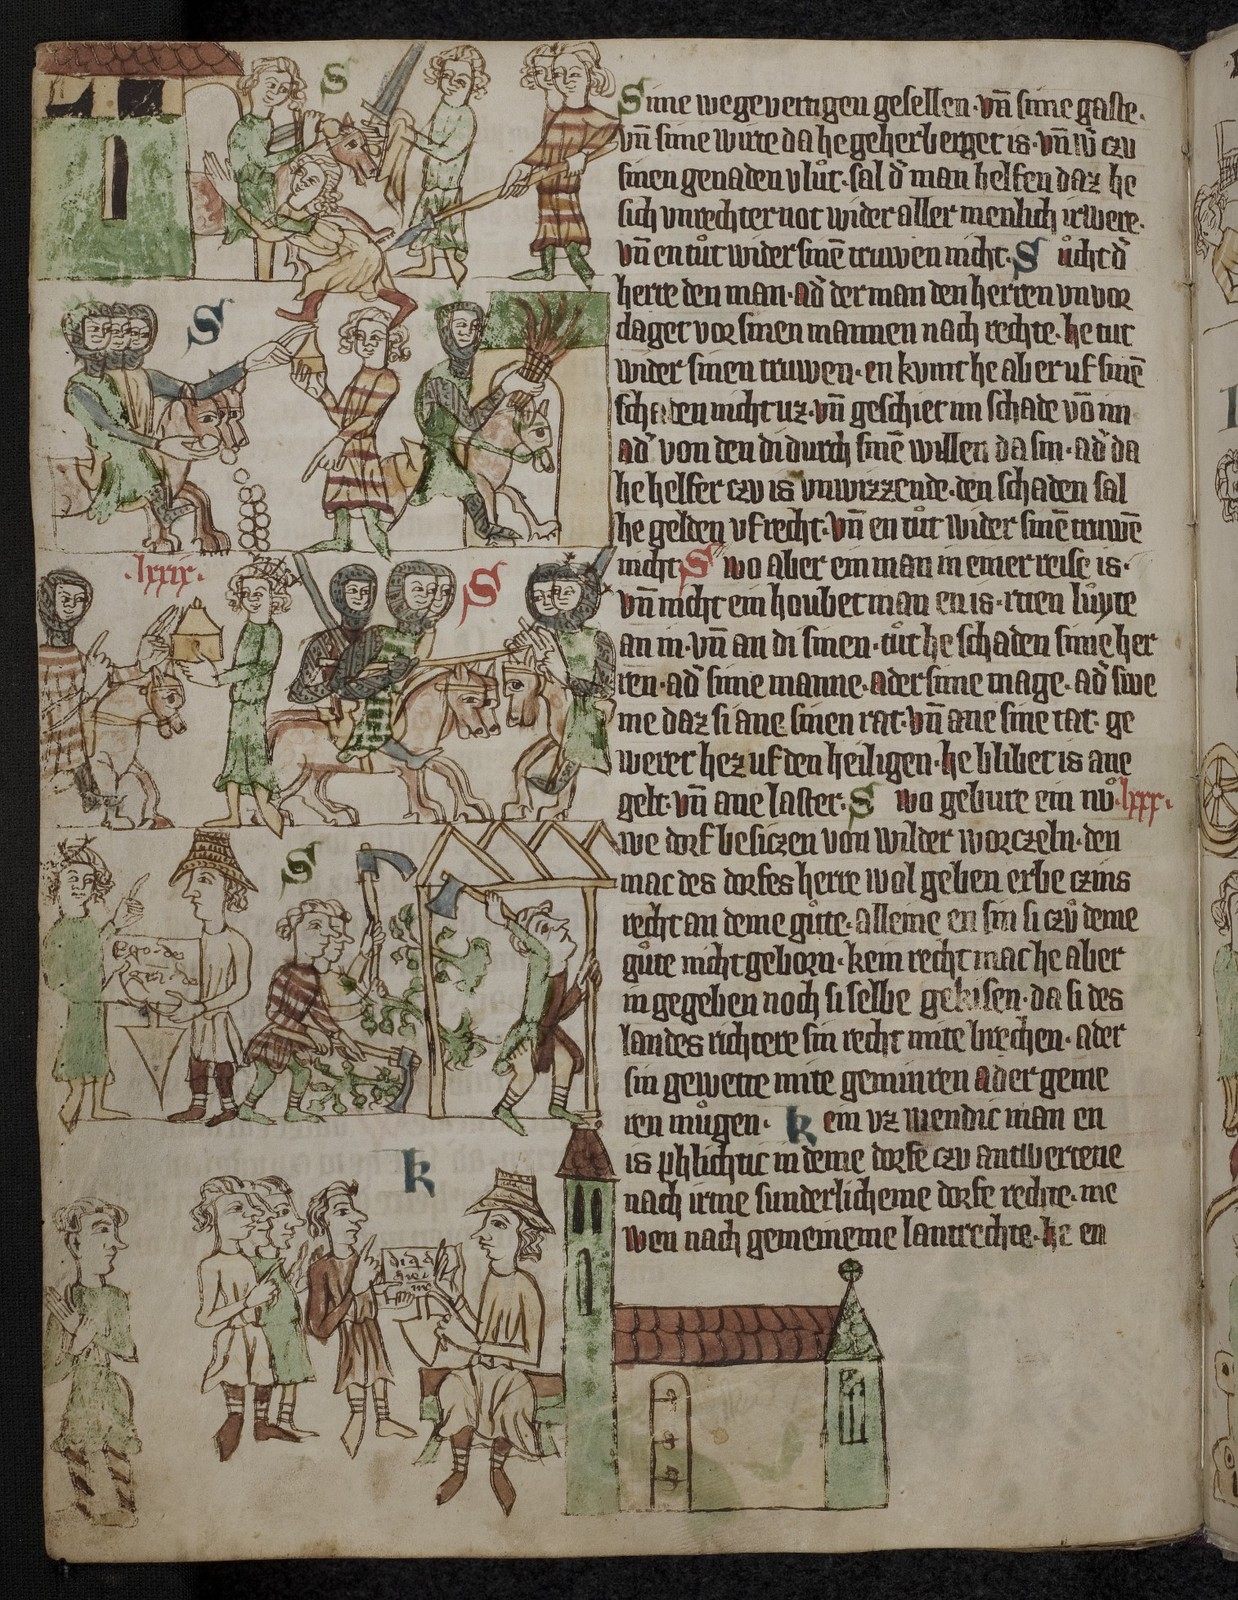 S
Sine wegevertigen gesellen· vn̄ sine gaste·
vn̄ sine wirte da he geherberget is· vn̄ w̄ czu
sinen genaden vlůt· sal d̄ man helfen daz he
sich vnrechter not wider aller menlich irwere·
vn̄ en tůt wider sinē truwen nicht· S ůcht d̄
herre den man· ad̄ der man den herren vnvor
daget vor sinen mannen nach rechte· he tut
wider sinen truwen· en kumt he aber uf sinē
schaden nicht uz· vn̄ geschiet im schade vō im
ad̄ von den di durch sinē willen da sin· ad̄ da
he helfer czu is vnwizzende· den schaden sal
he gelden uf recht· vn̄ en tůt wider sinē truwē
nicht S wo aber ein man in einer reise is·
vn̄ nicht ein houbetman en is· riten lůyte
an in· vn̄ an di sinen· tůt he schaden sime her
ren· ad̄ sime manne· ader sime mage· ad̄ swe
me daz si ane sinen rat· vn̄ ane sine tat· ge
weret hez uf den heiligen· he blibet is ane
gelt· vn̄ ane laster· S wo gebure ein nů ·lxxx·
we dorf besiczen von wilder worczeln· den
mac des dorfes herre wol geben erbe czins
recht an deme gůte· alleine en sin si czů deme
gůte nicht geborn· kein recht mac he aber
in gegeben noch si selbe gekisen· da si des
landes richtere sin recht mite brechen· ader
sin gewette mite geminren ader geme
ren můgen· k ein vz wendic man en
is phlichtic in deme dorfe czu antwertene
nach irme sunderlicheme dorfe rechte· me
wen nach gemeineme lantrechte· he en
S
·lxxix·
S
S
Ego de
gra de
k